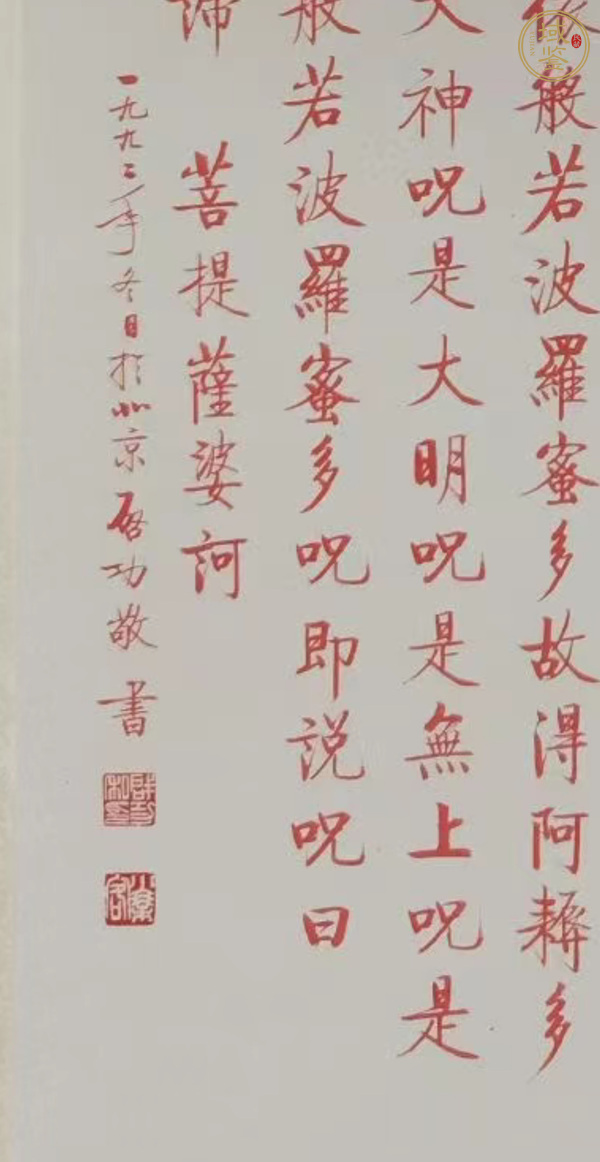 依般若波羅蜜多故得阿耨多
大神呪是大明呪是無上呪是
般若波羅蜜多呪即説呪曰
諦 菩提薩婆訶
一九九二年冬日於北京啓功敬書